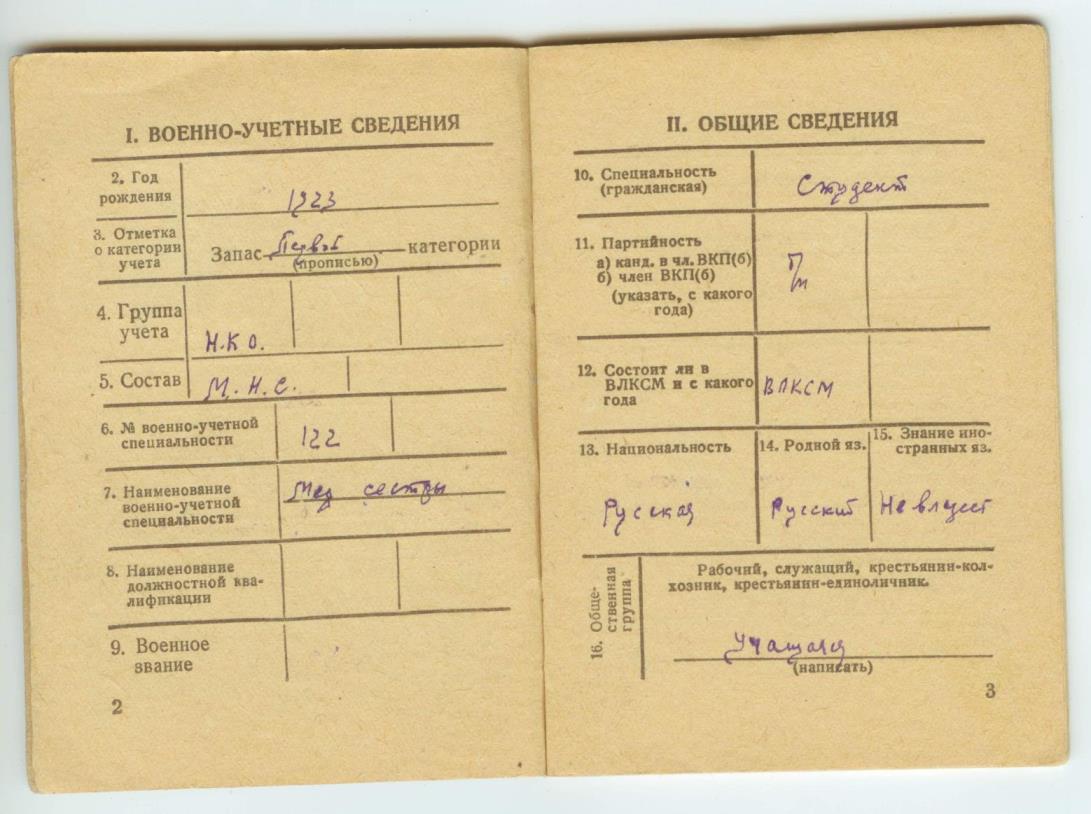 I. ВОЕННО-УЧЕТНЫЕ СВЕДЕНИЯ
2. Год
рождения
1923
3. Отметка
о категории
учета
Запас Первой категории
(прописью)
4. Группа
учета
Н.К.О.
5. Состав
М.Н.С.
6. № военно-учетной
специальности
122
7. Наименование
военно-учетной
специальности
Мед сестры
8. Наименование
должностной ква-
лификации
9. Военное
звание
2
II. ОБЩИЕ СВЕДЕНИЯ
10. Специальность
(гражданская)
Студент
11. Партийность
а) канд. в чл. ВКП(б)
б) член ВКП(б)
(указать, с какого
года)
12. Состоит ли в
ВЛКСМ и с какого
года
ВЛКСМ
13. Национальность
Русская
14. Родной яз.
Русский
15. Знание ино-
странных яз.
Не владеет
16. Обще-
ственная
группа
Рабочий, служащий, крестьянин-кол-
хозник, крестьянин-единоличник.
Учащаяся
(написать)
3